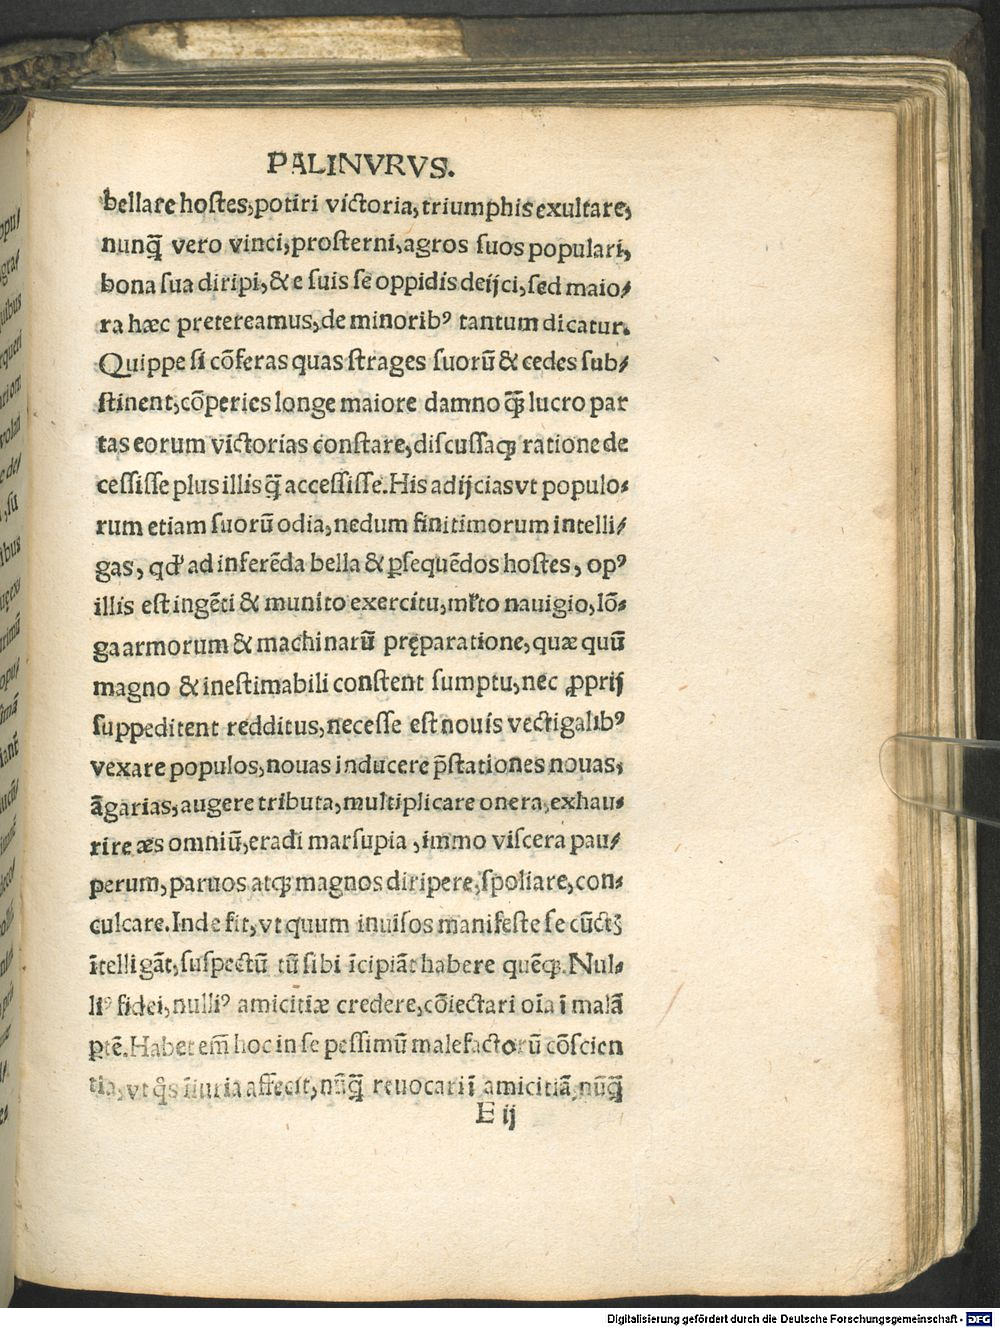 PALINVRVS.
bellare hoſtes,potiri victoria,triumphis exultare,
nunq̃ vero vinci,proſterni,agros ſuos populari,
bona ſua diripi,& e ſuis ſe oppidis deijci,ſed maio/
ra hæc pretereamus,de minorib⁹ tantum dicatur.
Quippe ſi cõferas quas ſtrages ſuorũ & cedes ſub/
ſtinent,cõperies longe maiore damno q̃ lucro par
tas eorum victorias conſtare,diſcuſſaqꝫ ratione de
ceſſiſſe plus illis q̃ acceſſiſſe.His adijcias vt populo/
rum etiam ſuorũ odia,nedum finitimorum intelli/
gas, qd' ad inferẽda bella & ꝑſequẽdos hoſtes, op⁹
illis eſt ingẽti & munito exercitu,mľto nauigio,lõ/
ga armorum & machinarũ pręparatione,quæ quũ
magno & ineſtimabili conſtent ſumptu,nec ꝓprij
ſuppeditent redditus,neceſſe eſt nouis vectigalib⁹
vexare populos,nouas inducere p̃ſtationes nouas,
ãgarias,augere tributa,multiplicare onera,exhau/
rire æs omniũ,eradi marſupia ,immo viſcera pau/
perum,paruos atqꝫ magnos diripere,ſpoliare,con/
culcare.Inde fit,vt quum inuiſos manifeſte ſe cũctꝫ
ĩtelligãt,ſuſpectũ tũ ſibi ĩcipiãt habere quẽqꝫ.Nul/
li⁹ fidei,nulli⁹ amicitiæ credere,cõiectari oĩa ĩ malã
ꝑtẽ.Habet em̃ hoc in ſe peſſimũ malefactorũ cõſcien
tia,vt q̃s ĩiuria affecit,nũq̃ reuocari ĩ amicitiã,nũq̃
E ij
Digitalisierung gefördert durch die Deutsche Forschungsgemeinschaft - DFG